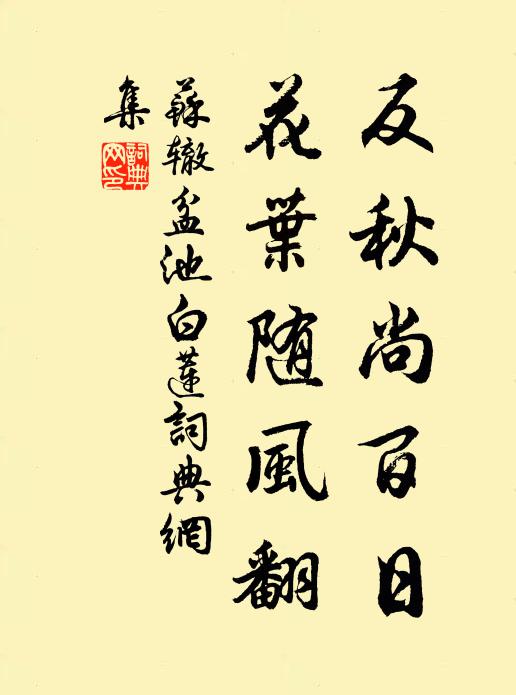 反秋尚百日
花葉随風翻
蘇辙盆池白蓮詞典網
集
詞典网印